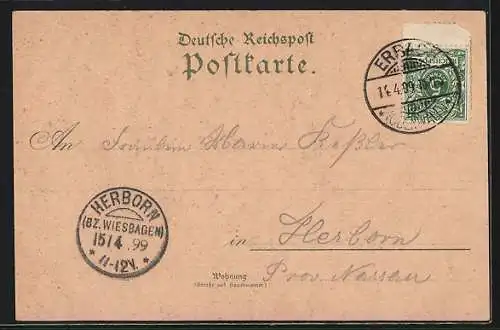 Deutsche Reichspost
Postkarte.
ERBACH
14.4.99
(ODENWALD)
An Fräulein Marie Keßler
HERBORN
(BZ. WIESBADEN)
15/4 .99
* 11-12V. *
in Herborn
Wohnung
(Straße und Hausnummer)
Prov. Nassau